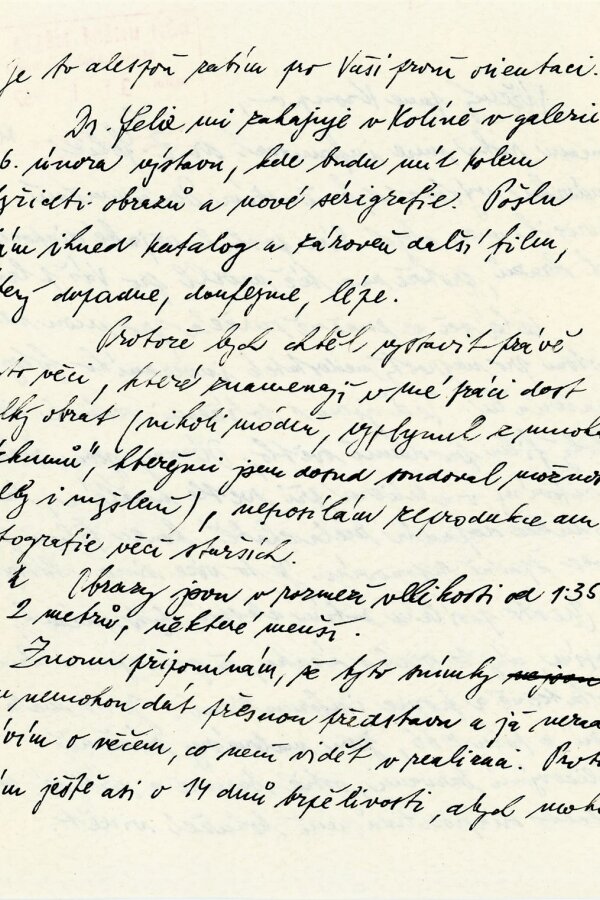 je to alespoň zatím pro Vaši první orientaci.
Dr. Felix mi zahajuje v Kolíně v galerii
6. února výstavu, kde budu mít kolem
třiceti obrazů a nové sérigrafie. Pošlu
Vám ihned katalog a zároveň další film,
který dopadne, doufejme, lépe.
Protože bych chtěl vystavit právě
tyto věci, které znamenají v mé práci dost
velký obrat (nikoli módní, vyplynul z mnoha
", kterými jsem dosud sondoval možnosti
i myšlení), neposílám reprodukce ani
fotografie věcí starších.
Obrazy jsou v rozmezí velikosti od 135
2 metrů, některé menší.
Znovu připomínám, že tyto snímky
nemohou dát přesnou představu a já nerad
o něčem, co není vidět v realizaci. Proto
ještě asi o 14 dnů trpělivosti, abych mohl